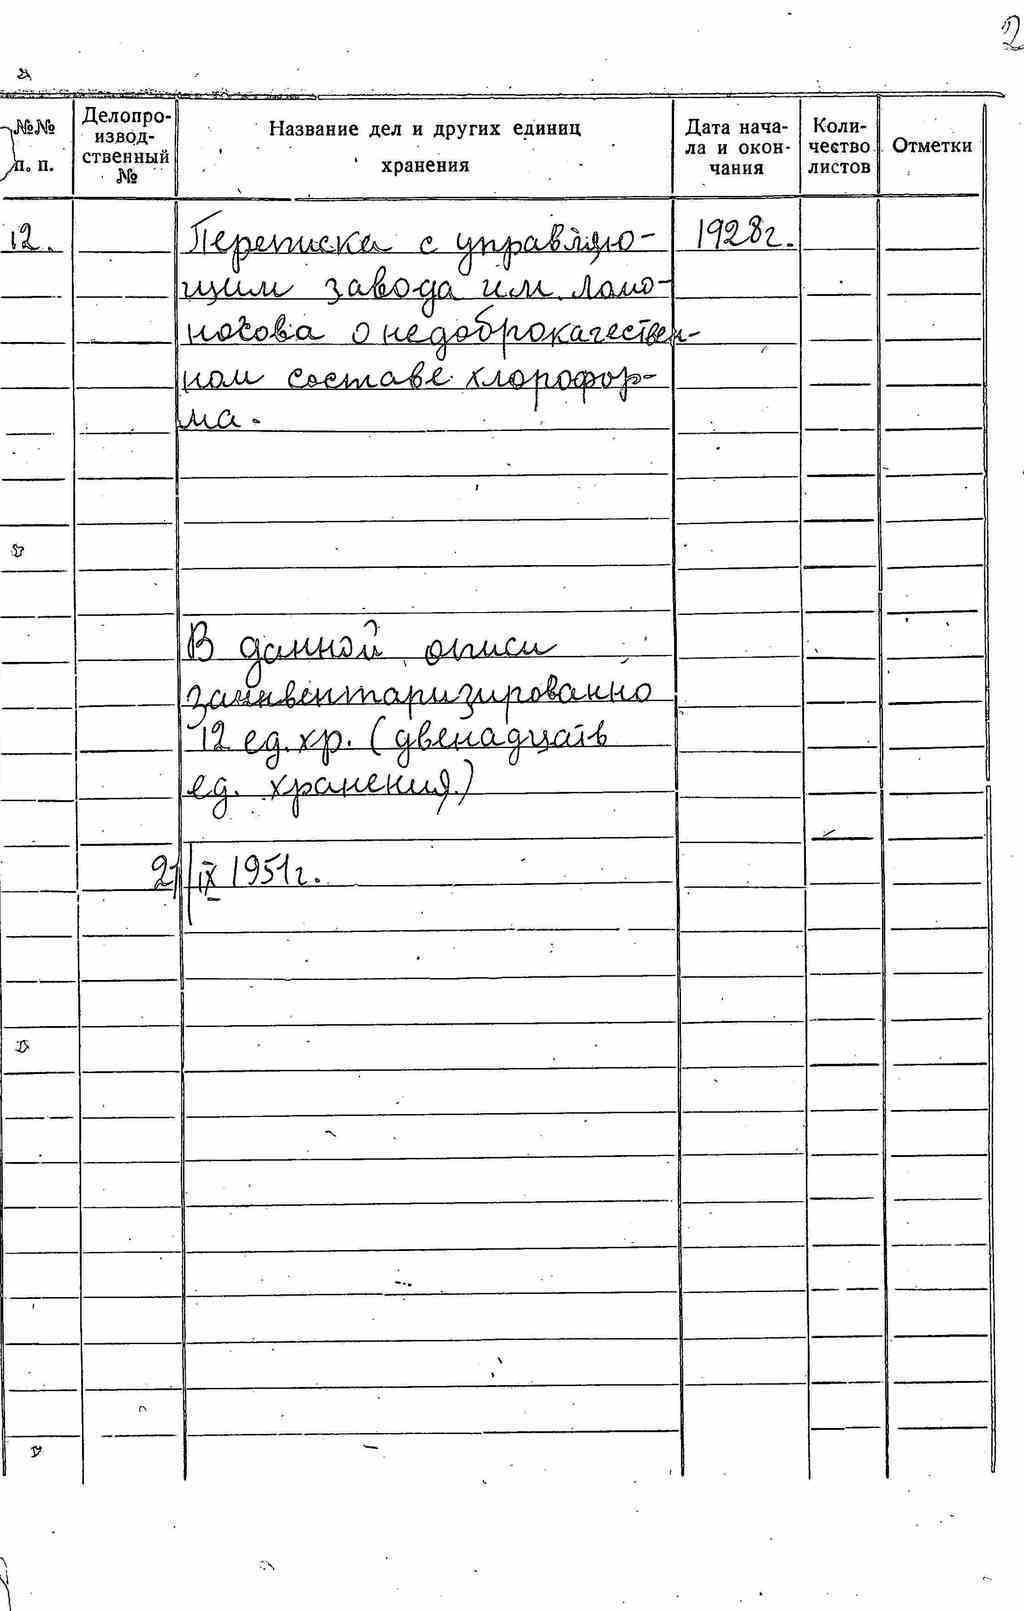 2
№№ п. п.
Делопро-
извод-
ственный
№
Название дел и других единиц
хранения
Дата нача-
ла и окон-
чания
Коли-
чество
листов
Отметки
12.
Переписка с управляю-
щим завода им. Ломо-
носова о недоброкачествен-
ном составе хлорофор-
ма.
1928г.
В данной описи
заинвентаризированно
12 ед. хр. (двенадцать
ед. хранения.)
21/IX 1951г.